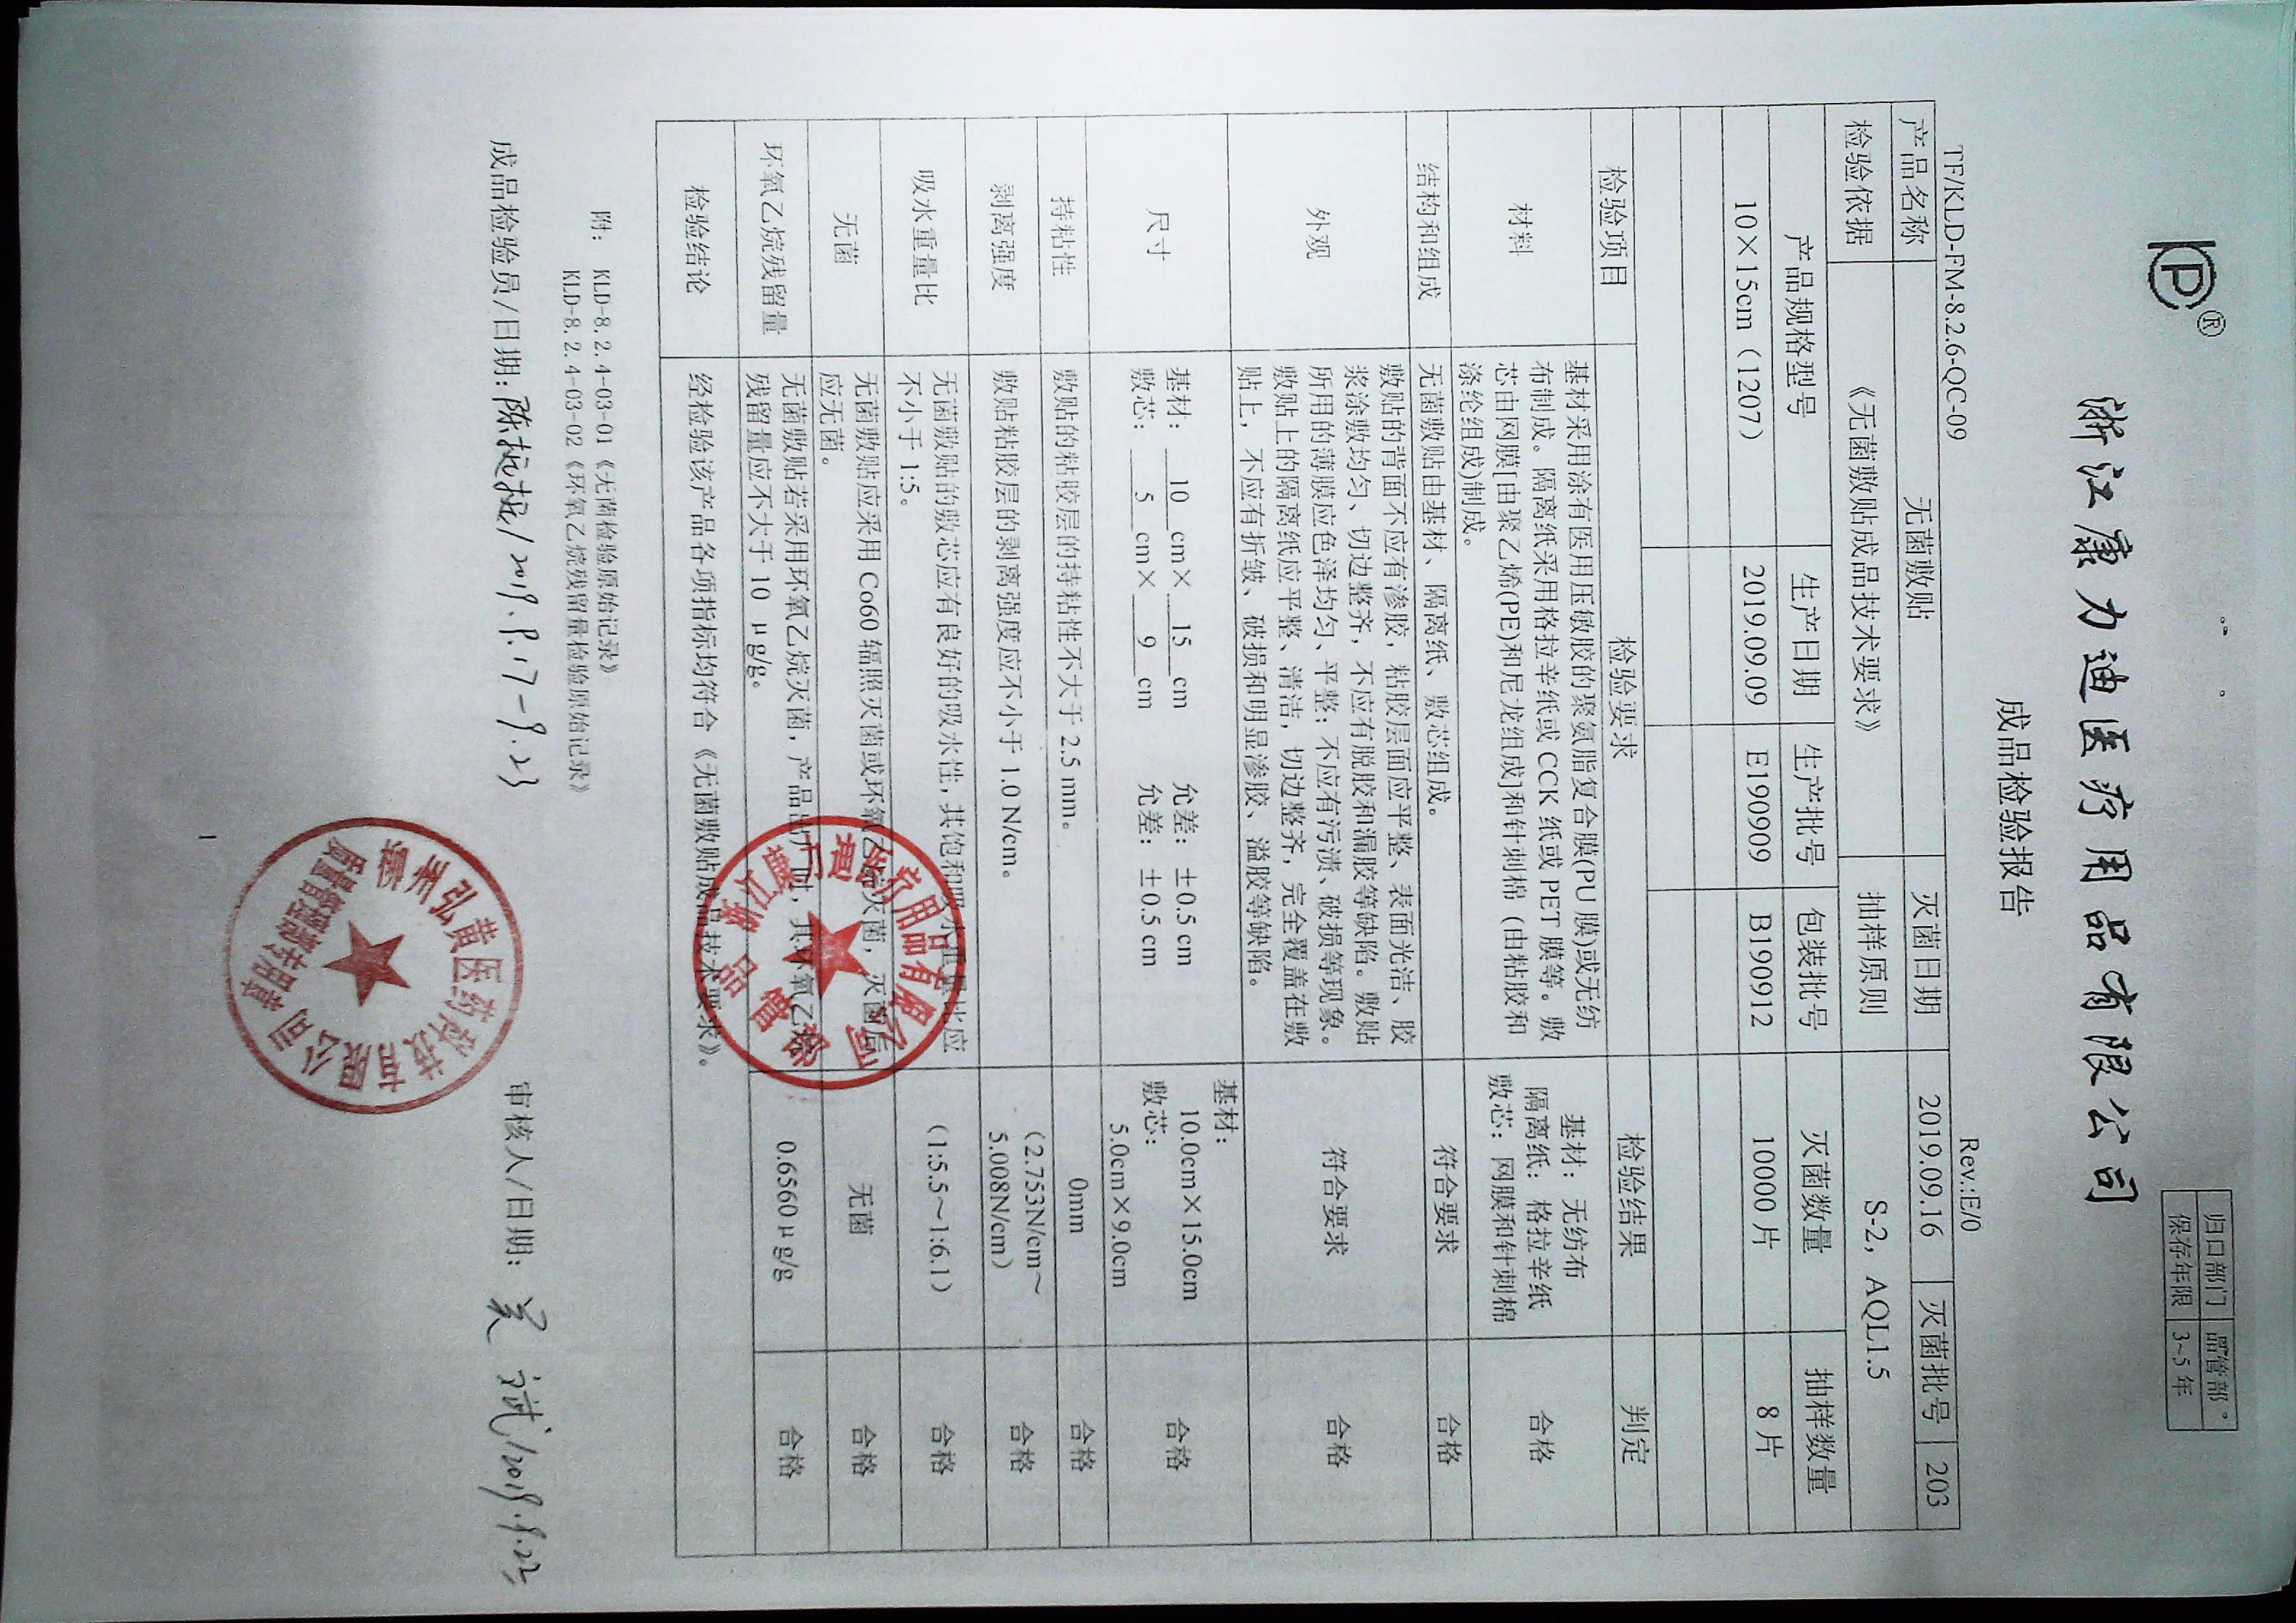 KP®
归口部门 品管部
保存年限 3~5 年
浙江康力迪医疗用品有限公司
成品检验报告
TF/KLD-FM-8.2.6-QC-09 Rev.:E/0
产品名称 无菌敷贴 灭菌日期 2019.09.16 灭菌批号 203
检验依据 《无菌敷贴成品技术要求》 抽样原则 S-2, AQL1.5
产品规格型号 生产日期 生产批号 包装批号 灭菌数量 抽样数量
10×15cm（1207） 2019.09.09 E190909 B190912 10000 片 8 片
检验项目 检验要求 检验结果 判定
材料
基材采用涂有医用压敏胶的聚氨脂复合膜(PU 膜)或无纺
布制成。隔离纸采用格拉辛纸或 CCK 纸或 PET 膜等。敷
芯由网膜[由聚乙烯(PE)和尼龙组成]和针刺棉（由粘胶和
涤纶组成)制成。
基材：无纺布
隔离纸：格拉辛纸
敷芯：网膜和针刺棉
合格
结构和组成 无菌敷贴由基材、隔离纸、敷芯组成。 符合要求 合格
外观
敷贴的背面不应有渗胶，粘胶层面应平整、表面光洁、胶
浆涂敷均匀、切边整齐，不应有脱胶和漏胶等缺陷。敷贴
所用的薄膜应色泽均匀、平整；不应有污渍、破损等现象。
敷贴上的隔离纸应平整、清洁，切边整齐，完全覆盖在敷
贴上，不应有折皱、破损和明显渗胶、溢胶等缺陷。
符合要求 合格
尺寸
基材： 10 cm× 15 cm 允差：±0.5 cm
敷芯： 5 cm× 9 cm 允差：±0.5 cm
基材：
10.0cm×15.0cm
敷芯：
5.0cm×9.0cm
合格
持粘性 敷贴的粘胶层的持粘性不大于 2.5 mm。 0mm 合格
剥离强度 敷贴粘胶层的剥离强度应不小于 1.0 N/cm。
（2.753N/cm～
5.008N/cm）
合格
吸水重量比
无菌敷贴的敷芯应有良好的吸水性，其饱和吸水重量比应
不小于 1:5。
（1:5.5～1:6.1）
合格
无菌
无菌敷贴应采用 Co60 辐照灭菌或环氧乙烷灭菌，灭菌后
应无菌。
无菌 合格
环氧乙烷残留量
无菌敷贴若采用环氧乙烷灭菌，产品出厂时，其环氧乙烷
残留量应不大于 10 μg/g。
0.6560μg/g 合格
检验结论 经检验该产品各项指标均符合《无菌敷贴成品技术要求》。
附： KLD-8.2.4-03-01《无菌检验原始记录》
KLD-8.2.4-03-02《环氧乙烷残留量检验原始记录》
成品检验员/日期： 2019.9.17-9.23 审核人/日期： 2019.9.23
浙江康力迪医疗用品有限公司
品管部
弘黄医药科技有限公司
质量管理部专用章
1